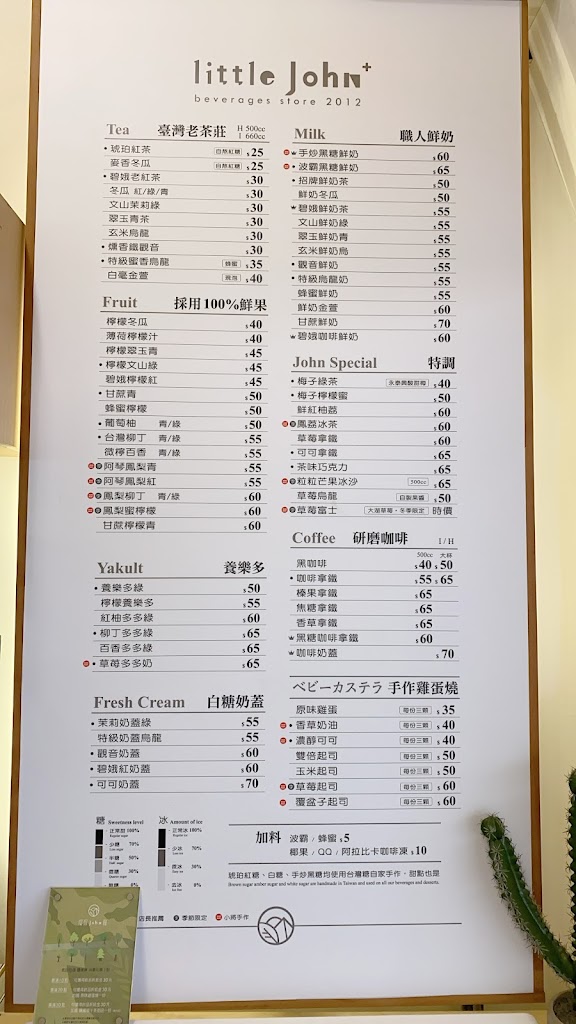 little John+
beverages store 2012
Tea 臺灣老茶莊 H 500cc
I 660cc
琥珀紅茶 自熬紅糖 $25
麥香冬瓜 自熬紅糖 $25
碧娥老紅茶 $30
冬瓜 紅/綠/青 $30
文山茉莉綠 $30
翠玉青茶 $30
玄米烏龍 $30
燻香鐵觀音 $30
特級蜜香烏龍 蜂蜜 $35
白毫金萱 $40
Fruit 採用100%鮮果
檸檬冬瓜 $40
薄荷檸檬汁 $40
檸檬翠玉青 $45
檸檬文山綠 $45
碧娥檸檬紅 $45
甘蔗青 $50
蜂蜜檸檬 $50
葡萄柚 青/綠 $50
台灣柳丁 青/綠 $55
微檸百香 青/綠 $55
阿琴鳳梨青 $55
阿琴鳳梨紅 $55
鳳梨柳丁 青/綠 $60
鳳梨蜜檸檬 $60
甘蔗檸檬青 $60
Yakult 養樂多
養樂多綠 $50
檸檬養樂多 $55
紅柚多多綠 $60
柳丁多多綠 $65
百香多多綠 $65
草莓多多奶 $65
Fresh Cream 白糖奶蓋
茉莉奶蓋綠 $55
特級奶蓋烏龍 $55
觀音奶蓋 $60
碧娥紅奶蓋 $60
可可奶蓋 $70
Milk 職人鮮奶
手炒黑糖鮮奶 $60
波霸黑糖鮮奶 $65
招牌鮮奶茶 $50
鮮奶冬瓜 $50
碧娥鮮奶茶 $55
文山鮮奶綠 $55
翠玉鮮奶青 $55
玄米鮮奶烏 $55
觀音鮮奶 $55
特級烏龍奶 $55
蜂蜜鮮奶 $55
鮮奶金萱 $60
甘蔗鮮奶 $70
碧娥咖啡鮮奶 $60
John Special 特調
梅子綠茶 永泰興酸甜梅 $40
梅子檸檬蜜 $50
鮮紅柚荔 $60
鳳荔冰茶 $60
草莓拿鐵 $60
可可拿鐵 $65
茶味巧克力 $65
粒粒芒果冰沙 500cc $65
草莓烏龍 自製果醬 $50
草莓富士 大湖草莓・冬季限定 時價
Coffee 研磨咖啡 I/H
500cc 大杯
黑咖啡 $40 $50
咖啡拿鐵 $55 $65
榛果拿鐵 $65
焦糖拿鐵 $65
香草拿鐵 $65
黑糖咖啡拿鐵 $60
咖啡奶蓋 $70
ベビーカステラ 手作雞蛋燒
原味雞蛋 每份三顆 $35
香草奶油 每份三顆 $40
濃醇可可 每份三顆 $40
雙倍起司 每份三顆 $50
玉米起司 每份三顆 $50
草莓起司 每份三顆 $60
覆盆子起司 每份三顆 $60
糖 Sweetness level
正常甜 100%
少糖 70%
半糖 50%
微糖 30%
冰 Amount of ice
正常冰 100%
少冰 70%
微冰 30%
去冰 0%
加料 波霸/蜂蜜 $5
椰果/QQ/阿拉比卡咖啡凍 $10
琥珀紅糖、白糖、手炒黑糖均使用台灣糖自家手作，甜點也是
Brown sugar amber sugar and white sugar are handmade in Taiwan and used on all our beverages and desserts.
店長推薦 季節限定 小將手作